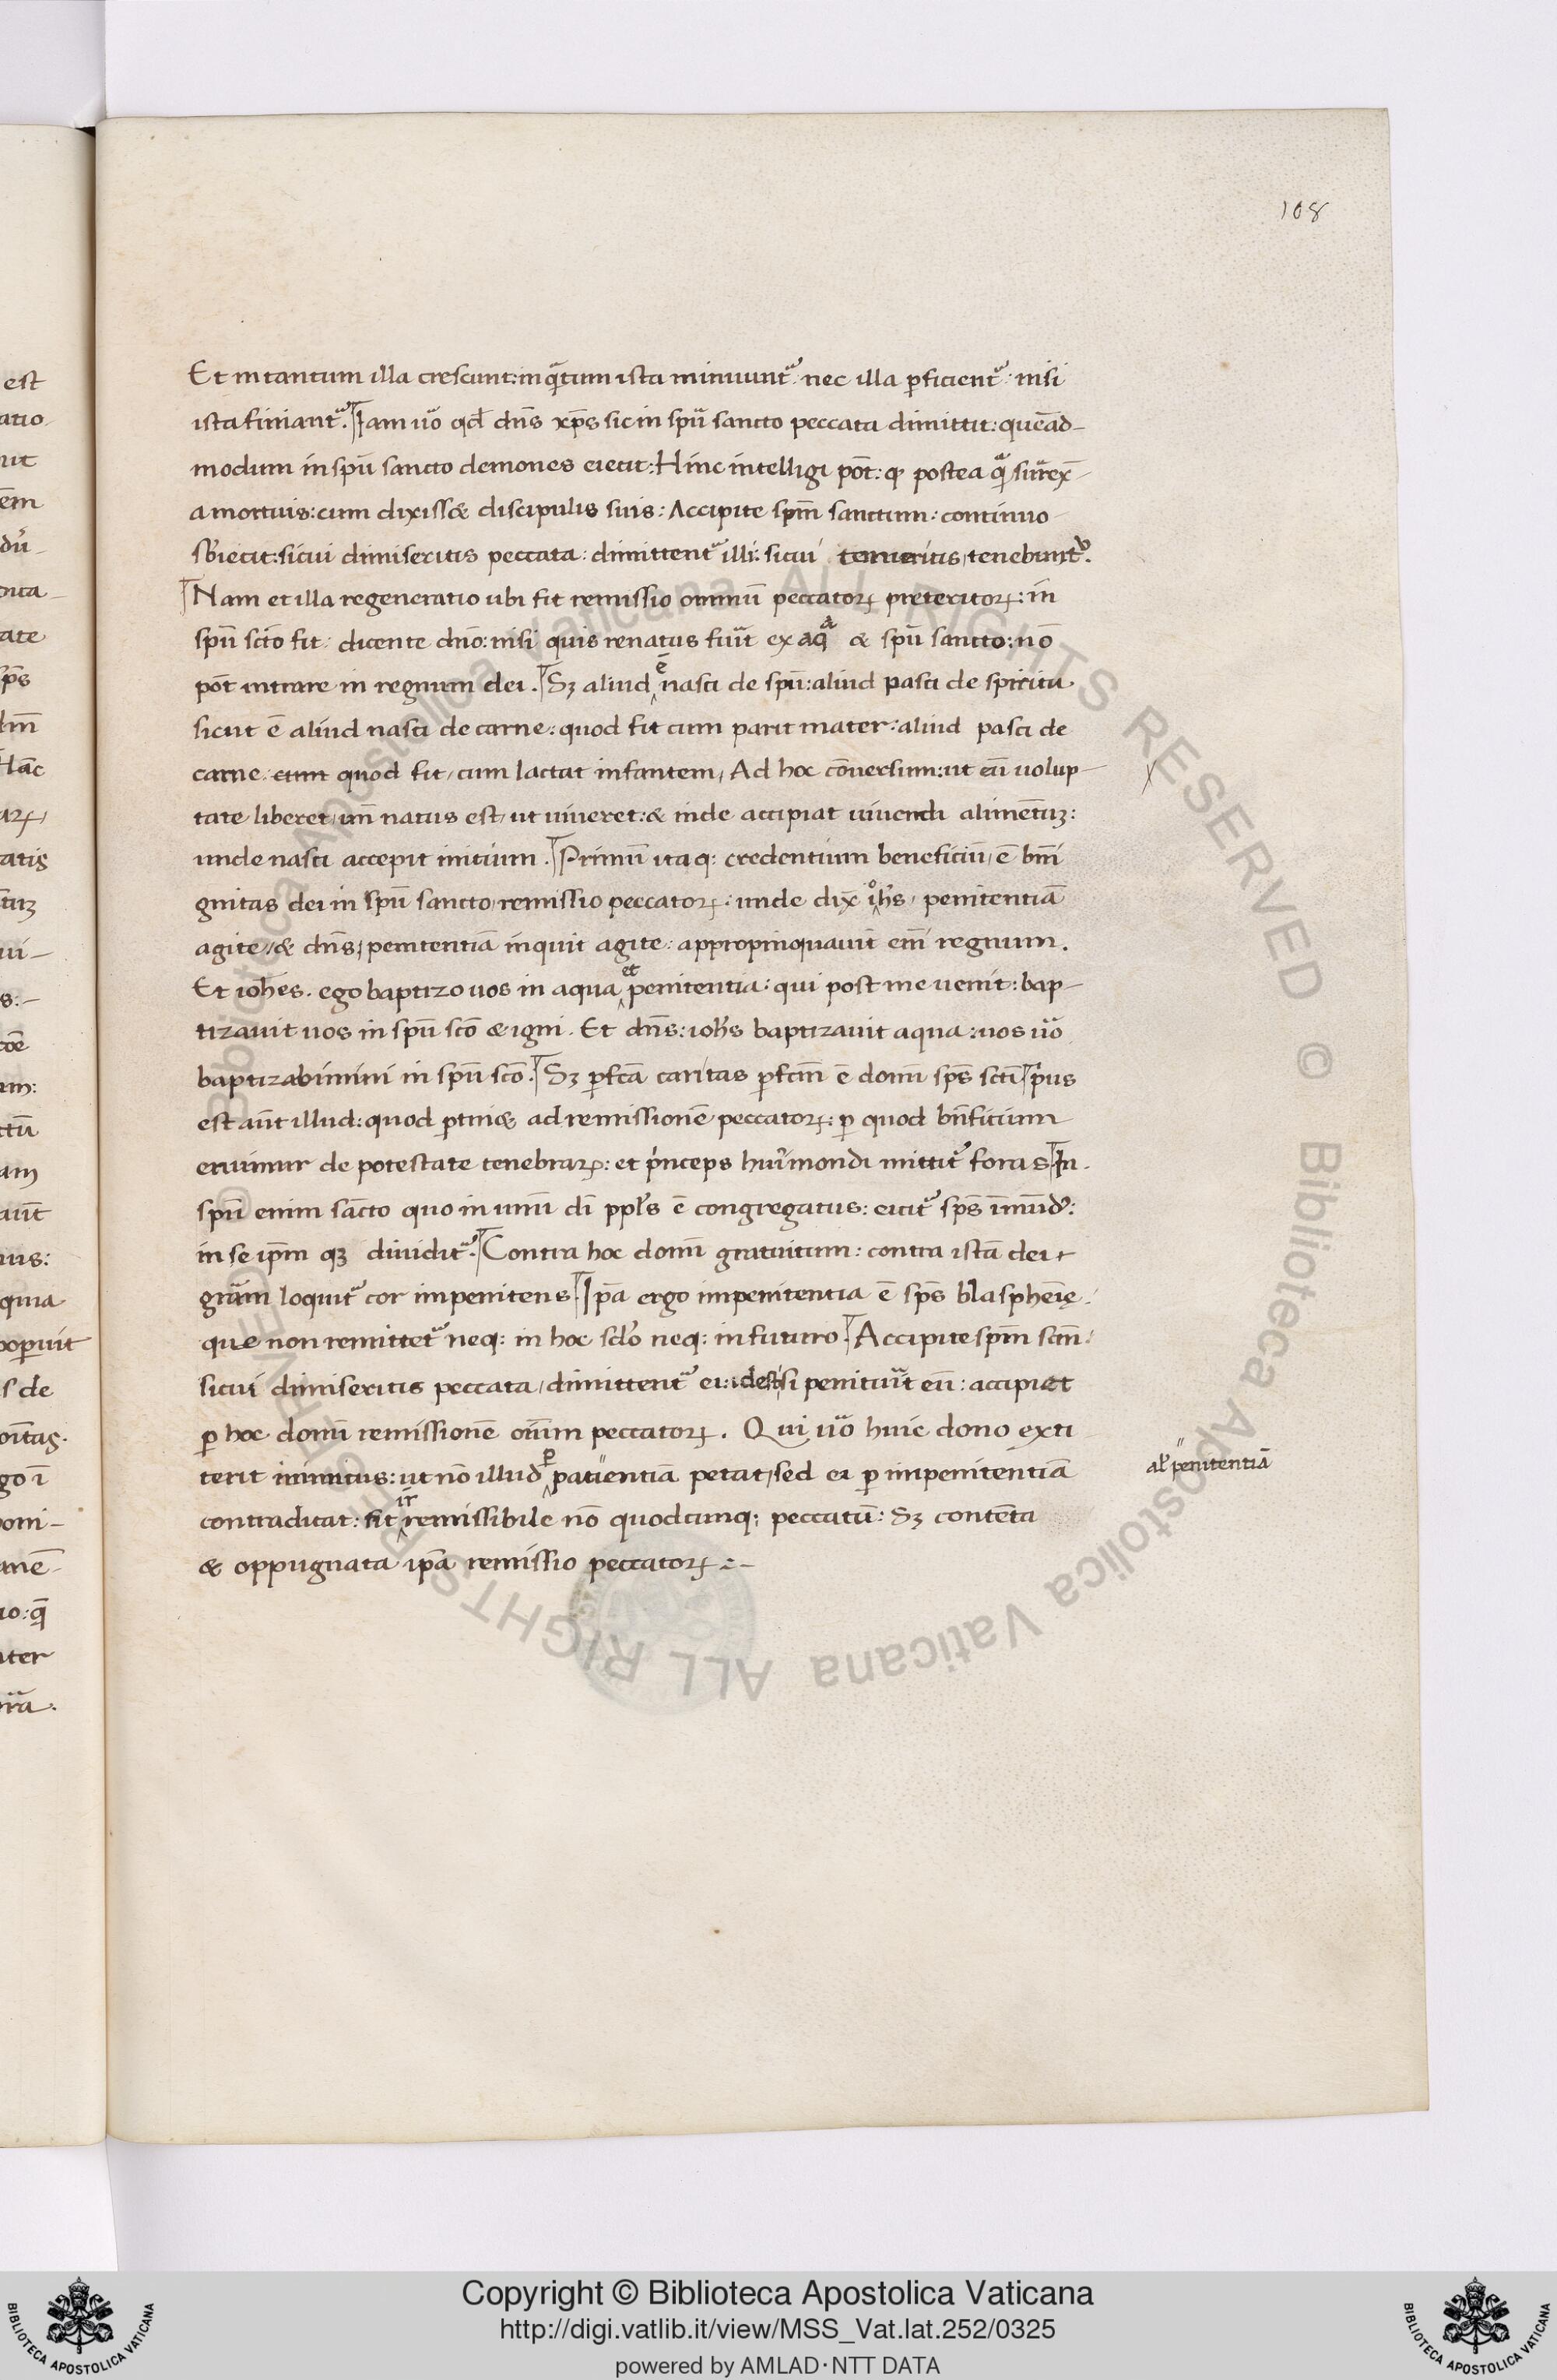 108
Et in tantum illa crescunt: in q̃tum ista minuunt᷑: nec illa ꝑficient᷑: nisi
ista finiant᷑. Iam uo̊ qd̃ dñs xp̃s sic in spũ sancto peccata dimittit: quẽad-
modum in spũ sancto demones eiecit: Hinc intelligi põt: ꝙ postea q̃ surrex̃
a mortuis: cum dixiss& discipulis suis: Accipite sp̃m sanctum: continuo
sb̾iecit: sicui dimiseritis peccata: dimittent᷑ illi: sicui tenueritis, tenebunt᷑.
Nam et illa regeneratio ubi fit remissio omniũ peccatoꝝ preteritoꝝ: in
spũ sc̃to fit: dicente dño: nisi quis renatus fuit̃ ex aqᵃ & spũ sancto: nõ
põt intrare in regnum dei. Sꝫ aliud ẽ nasci de spũ: aliud pasci de spiritu
sicut ẽ aliud nasci de carne: quod fit cum parit mater: aliud pasci de
carne: cum quod fit, cum lactat infantem, Ad hoc cõuersum: ut cũ uolup-
tate liberet, uñ natus est, ut uiueret: & inde accipiat uiuendi alimẽtuꝫ:
unde nasci accepit initium. Primũ itaq: credentium beneficiũ, ẽ bnĩ
gnitas dei in spũ sancto, remissio peccatoꝝ: unde dix̃ iohs̃, penitentiã
agite, & dñs, penitentiã inquit agite: appropinquauit em̃ regnum.
Et ioh̃es. ego baptizo uos in aqua et penitentia: qui post me uenit: bap-
tizauit uos in spũ scõ & igni. Et dñs: iohs̃ baptizauit aqua: uos uo̊
baptizabimini in spũ scõ. Sꝫ ꝑfcã caritas ꝑfcm̃ ẽ donũ sp̃s scti̇̃ prius
est aũt illud: quod ꝑtini& ad remissionẽ peccatoꝝ: ꝑ quod bñficium
eruimur de potestate tenebraꝝ: et princeps hui᷒ mondi mittit᷑ foras In
spũ enim sãcto quo in unũ di ̃ppl̃s ẽ congregatus: eicit᷑ sp̃s ĩmũd᷒:
in se ip̃m qꝫ diuidit᷑. Contra hoc donũ gratuitum: contra istã dei
grãm loquit᷑ cor impenitens. Ip̃a ergo impenitentia ẽ sp̃s blasphemię:
que non remittet᷑ neq: in hoc sclo̊ neq: in futuro. Accipite sp̃m scm̃:
sicui dimiseritis peccata, dimittent᷑ ei: idest, si penituit̃ eũ: accipiet
ꝑ hoc donũ remissionẽ oĩm peccatoꝝ. Qui uo̊ huic dono exti
terit inimicus: ut nõ illud ꝑ patientiã petat, sed ei ꝑ impenitentiã
al̾ penitentiã
contradicat: fit ir remissibile nõ quodcunq: peccatũ: Sꝫ contẽta
& oppugnata ip̃a remissio peccatoꝝ :-
Copyright © Biblioteca Apostolica Vaticana
http://digi.vatlib.it/view/MSS_Vat.lat.252/0325
powered by AMLAD·NTT DATA